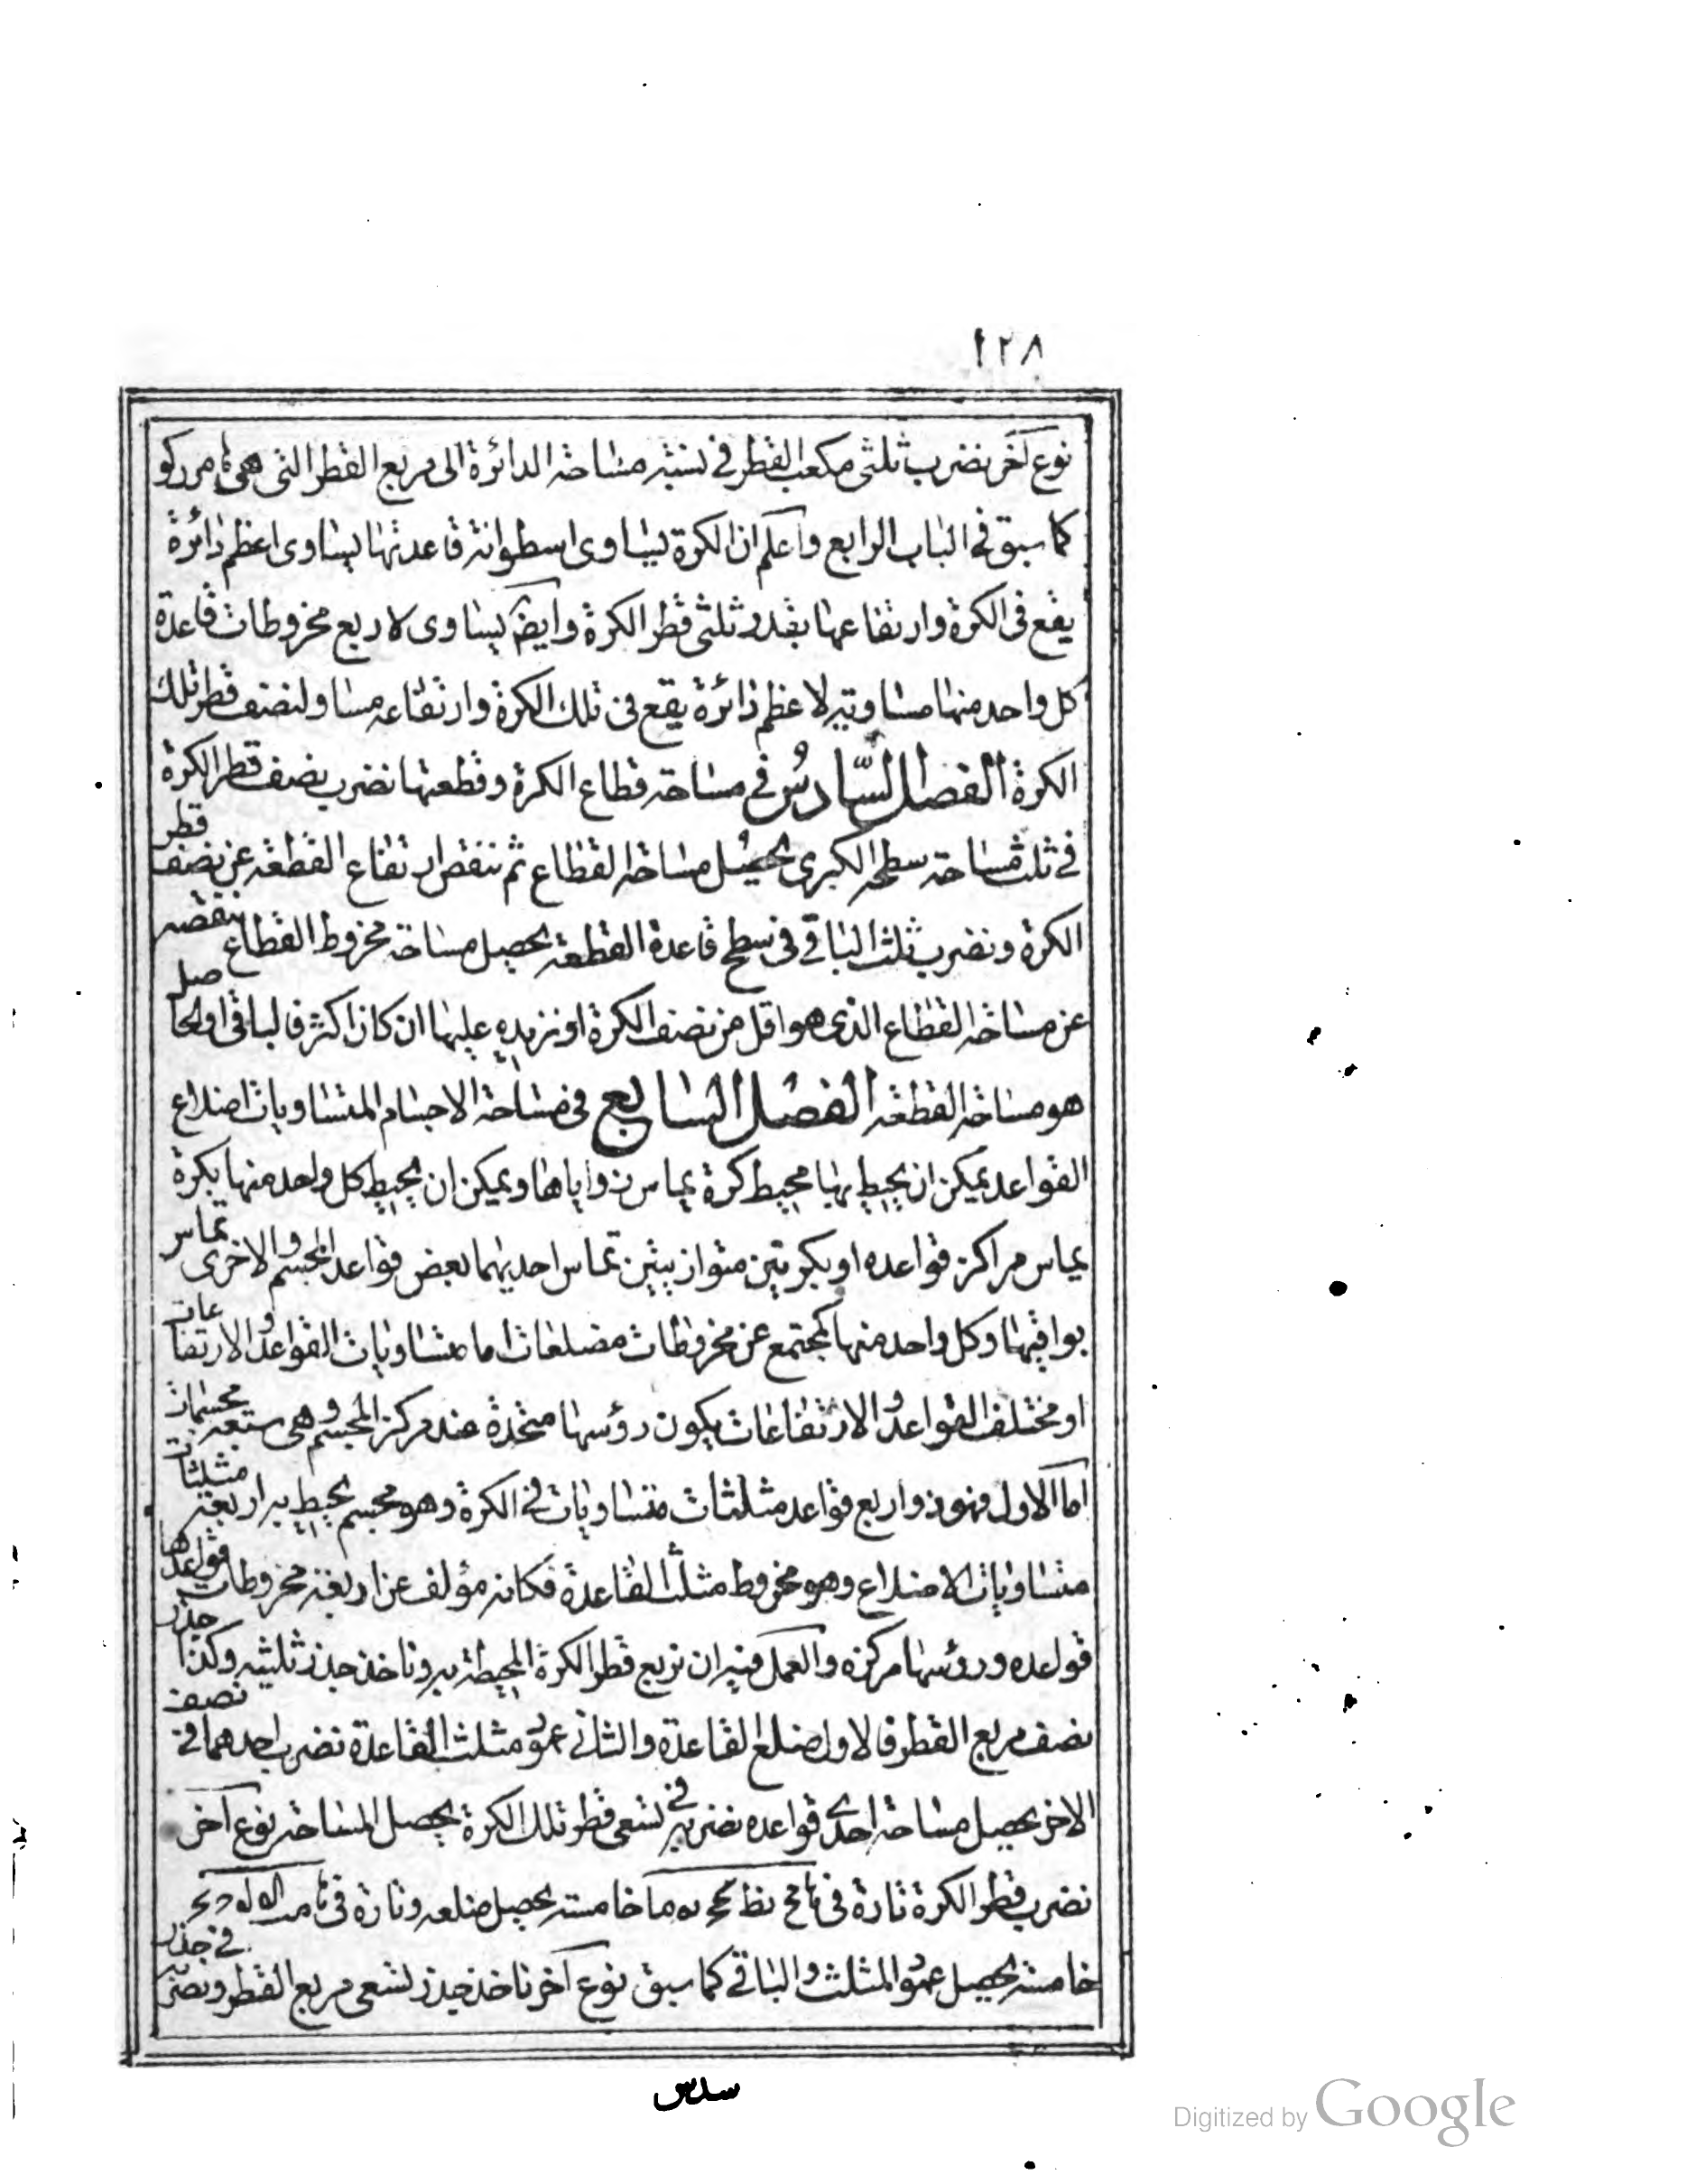 ١٢٨
نوع آخر نضرب ثلثى مكعب القطر فى نسبة مساحة الدائرة الى مربع القطر التى هى
كما سبق فى الباب الرابع واعلم ان الكرة يساوى اسطوانة قاعدتها يساوى اعظم دائرة
يقع فى الكرة وارتفاعها بقدر ثلثى قطر الكرة وايضا يساوى لاربع مخروطات قاعدة
كل واحد منها مساوية لاعظم دائرة يقع فى تلك الكرة وارتفاعه مساو لنصف قطر تلك
الكرة الفصل السادس فى مساحة قطاع الكرة وقطعتها نضرب نصف قطر الكرة
فى ثلث مساحة سطحه الكبرى يحصل مساحة القطاع ثم ننقص ارتفاع القطعة عن نصف قطر
الكرة ونضرب ثلث الباقى فى سطح قاعدة القطعة يحصل مساحة مخروط القطاع ننقصه
عن مساحة القطاع الذى هو اقل من نصف الكرة او نزيده عليها ان كان اكثر فالباقى او الحاصل
هو مساحة القطعة الفصل السابع فى مساحة الاجسام المتساويات اضلاع
القواعد يمكن ان يحيط بها محيط كرة يماس زواياها ويمكن ان يحيط كل واحد منها بكرة
يماس مراكز قواعده او بكرتين متوازيتين تماس احديهما بعض قواعد المجسم والاخرى تماس
بواقيها وكل واحد منها مجتمع عن مخروطات مضلعات اما متساويات القواعد والارتفاعات
او مختلف القواعد والارتفاعات يكون رؤسها متحدة عند مركز المجسم وهى سبعة مجسمات
اما الاول فهو ذو اربع قواعد مثلثات متساويات فى الكرة وهو مجسم يحيط به اربعة مثلثات
متساويات الاضلاع وهو مخروط مثلث القاعدة فكانه مؤلف عن اربعة مخروطات قواعدها
قواعده ورؤسها مركزه والعمل فيه ان نربع قطر الكرة المحيطة به وناخذ جذر ثلثيه وكذا جذر
نصف مربع القطر فالاول ضلع القاعدة والثانى عمود مثلث القاعدة نضرب احدهما فى نصف
الاخر يحصل مساحة احدى قواعده نضربه فى تسعى قطر تلك الكرة يحصل المساحة نوع آخر
نضرب قطر الكرة تارة فى خامسة يحصل ضلعه وتارة فى
خامسة يحصل عمود المثلث والباقى كما سبق نوع آخر ناخذ جذر تسعى مربع القطر ونضربه فى جذر
سدس
Digitized by Google